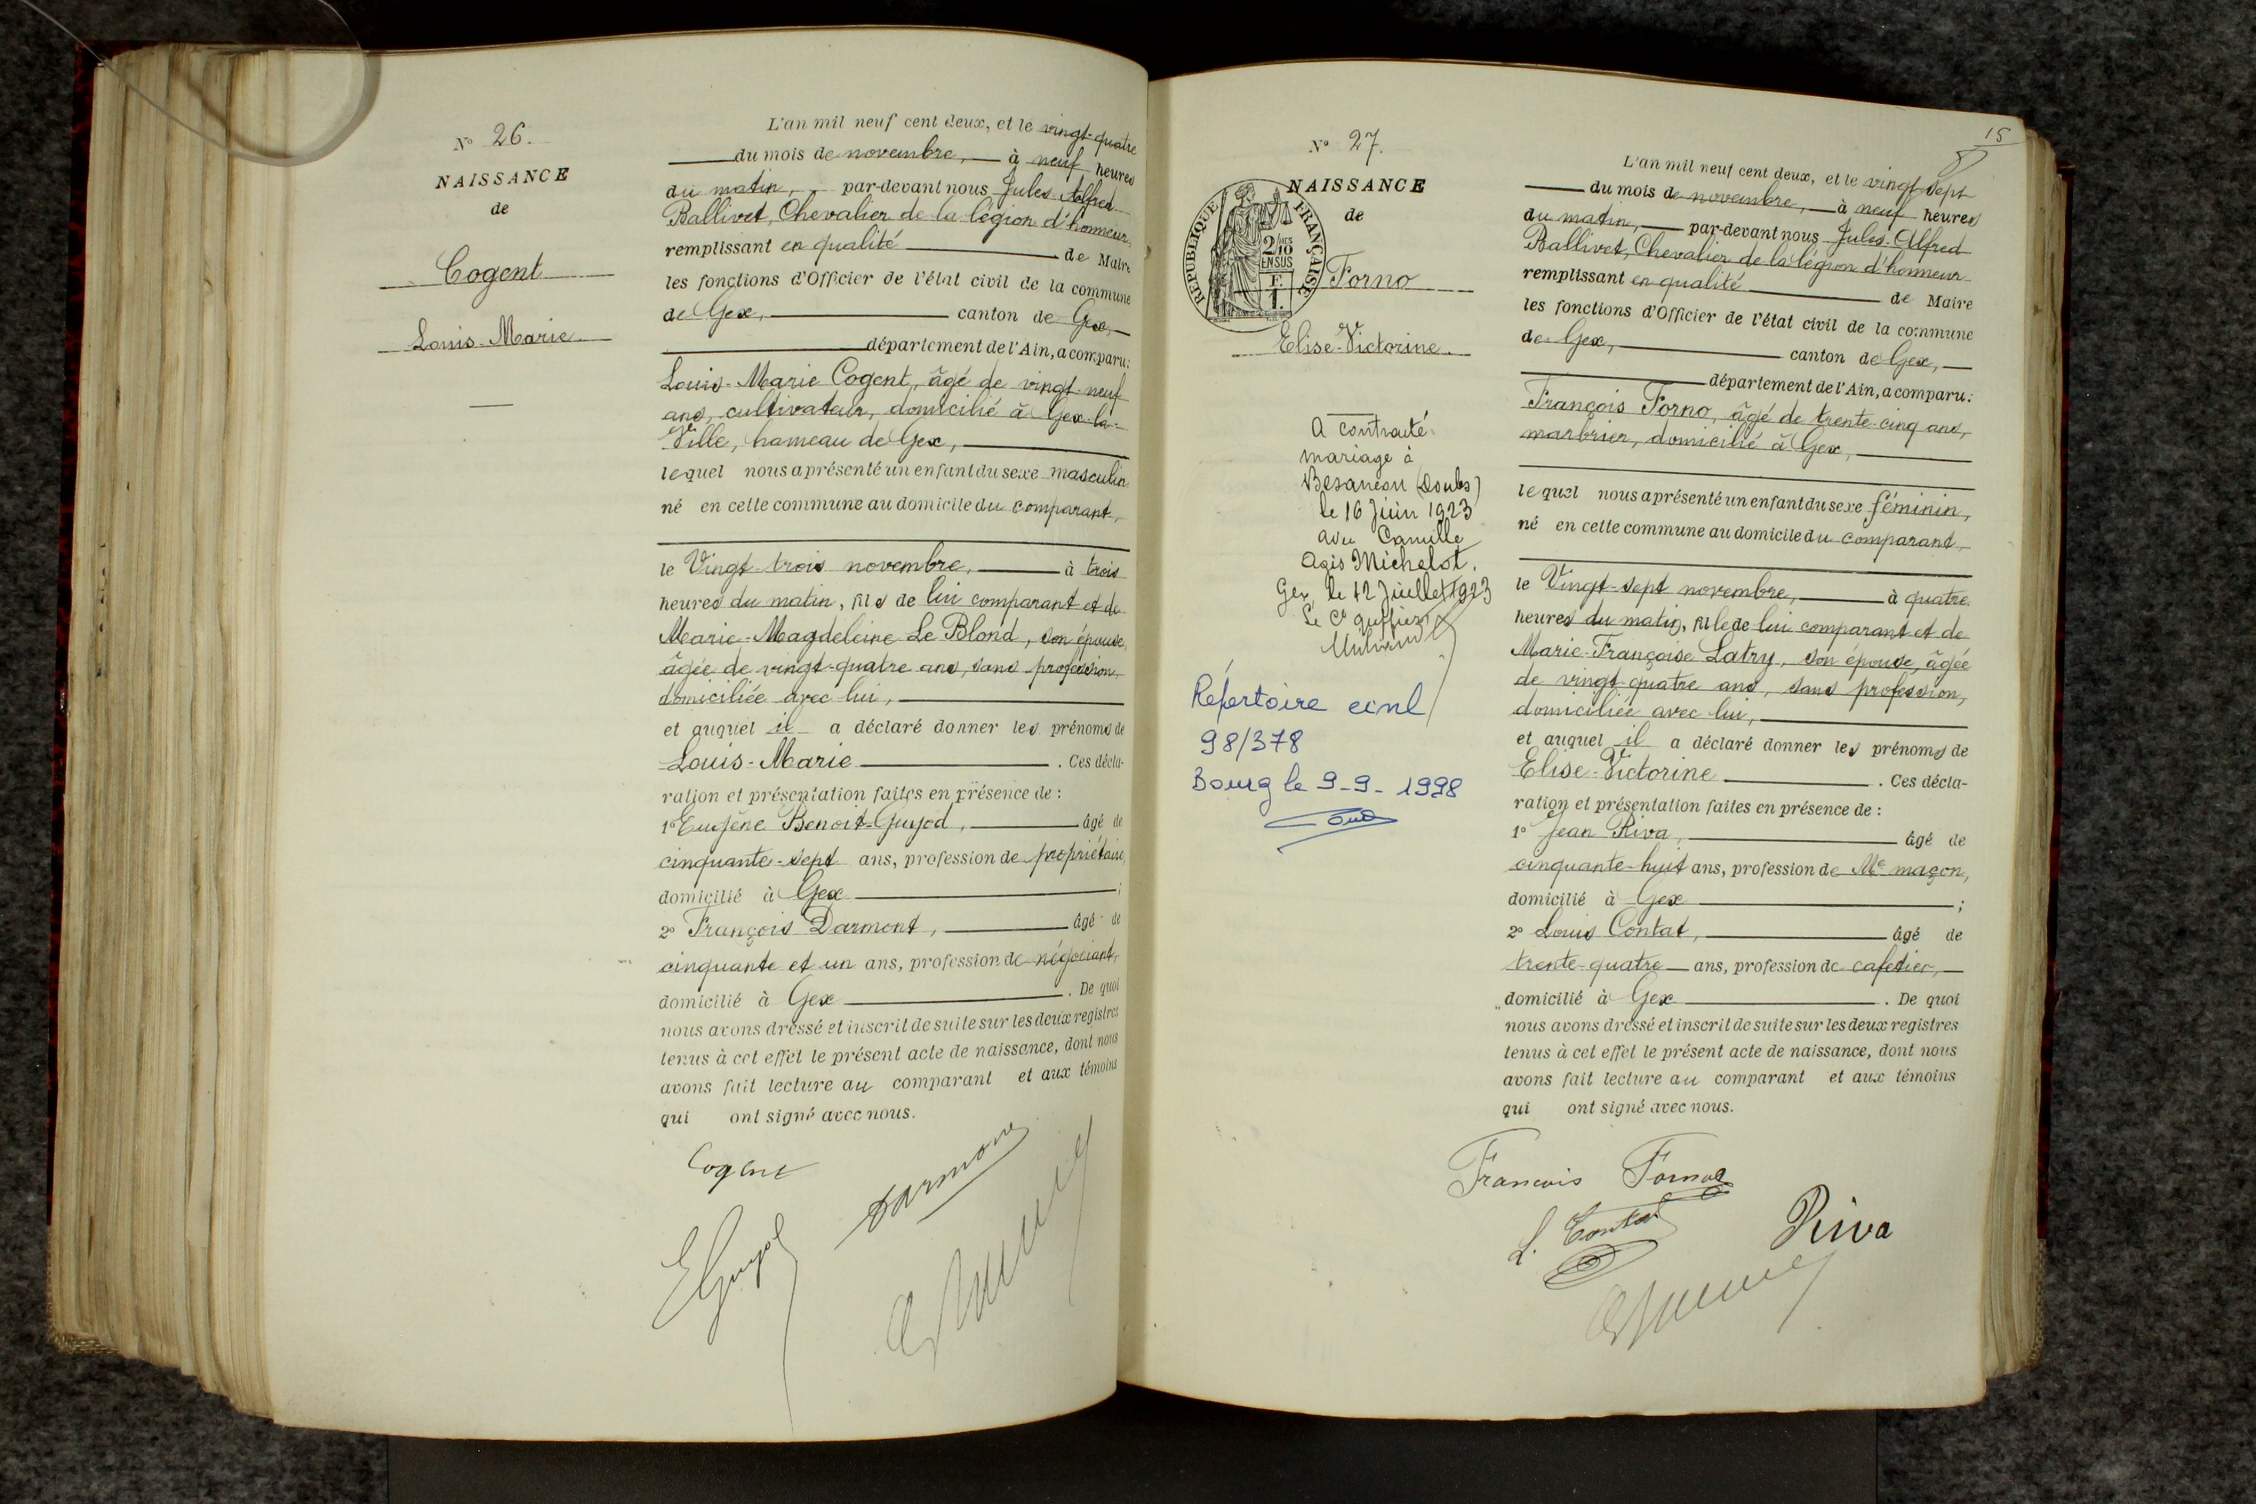 Nº 26.
NAISSANCE
de
Cogent
Louis-Marie
L'an mil neuf cent deux, et le vingt-quatre
du mois de novembre, à neuf heures
du matin, par-devant nous Jules-Alfred
Ballivet, Chevalier de la légion d'honneur,
remplissant en qualité de Maire
les fonctions d'Officier de l'état civil de la commune
de Gex, canton de Gex,
département de l'Ain, a comparu:
Louis-Marie Cogent, âgé de vingt-neuf
ans, cultivateur, domicilié à Gex-la-
Ville, hameau de Gex,
lequel nous a présenté un enfant du sexe masculin
né en cette commune au domicile du comparant,
le Vingt-trois novembre, à trois
heures du matin, fils de lui comparant et de
Marie-Magdeleine Le Blond, son épouse,
âgée de vingt-quatre ans, sans profession,
domiciliée avec lui,
et auquel il a déclaré donner les prénoms de
Louis-Marie. Ces décla-
ration et présentation faites en présence de :
1º Eugène Benoit-Guyod, âgé de
cinquante-sept ans, profession de propriétaire,
domicilié à Gex ;
2º François Darmont, âgé de
cinquante et un ans, profession de négociant,
domicilié à Gex. De quoi
nous avons dressé et inscrit de suite sur les deux registres
tenus à cet effet le présent acte de naissance, dont nous
avons fait lecture au comparant et aux témoins
qui ont signé avec nous.
Cogent
Darmont
E Guyod
15
Nº 27.
NAISSANCE
de
RÉPUBLIQUE FRANÇAISE
2/10
EN SUS
F.
1.
Forno
Elise-Victorine.
A contracté
mariage à
Besancon (Doubs)
le 16 Juin 1923
avec Camille
Agis Michelot.
Gex, le 12 Juillet 1923
Le Cs greffier
Répertoire civil
98/378
Bourg le 9-9-1998
L'an mil neuf cent deux, et le vingt-sept
du mois de novembre, à neuf heures
du matin, par-devant nous Jules-Alfred
Ballivet, Chevalier de la légion d'honneur
remplissant en qualité de Maire
les fonctions d'Officier de l'état civil de la commune
de Gex, canton de Gex,
département de l'Ain, a comparu:
François Forno, âgé de trente-cinq ans,
marbrier, domicilié à Gex,
lequel nous a présenté un enfant du sexe féminin,
né en cette commune au domicile du comparant,
le Vingt-sept novembre, à quatre
heures du matin, fille de lui comparant et de
Marie-Françoise Latry, son épouse, âgée
de vingt-quatre ans, sans profession,
domiciliée avec lui,
et auquel il a déclaré donner les prénoms de
Elise-Victorine. Ces décla-
ration et présentation faites en présence de :
1º Jean Riva, âgé de
cinquante-huit ans, profession de Me maçon,
domicilié à Gex ;
2º Louis Contat, âgé de
trente-quatre ans, profession de cafetier,
domicilié à Gex. De quoi
nous avons dressé et inscrit de suite sur les deux registres
tenus à cet effet le présent acte de naissance, dont nous
avons fait lecture au comparant et aux témoins
qui ont signé avec nous.
Francois Forno
L. Contat
Riva